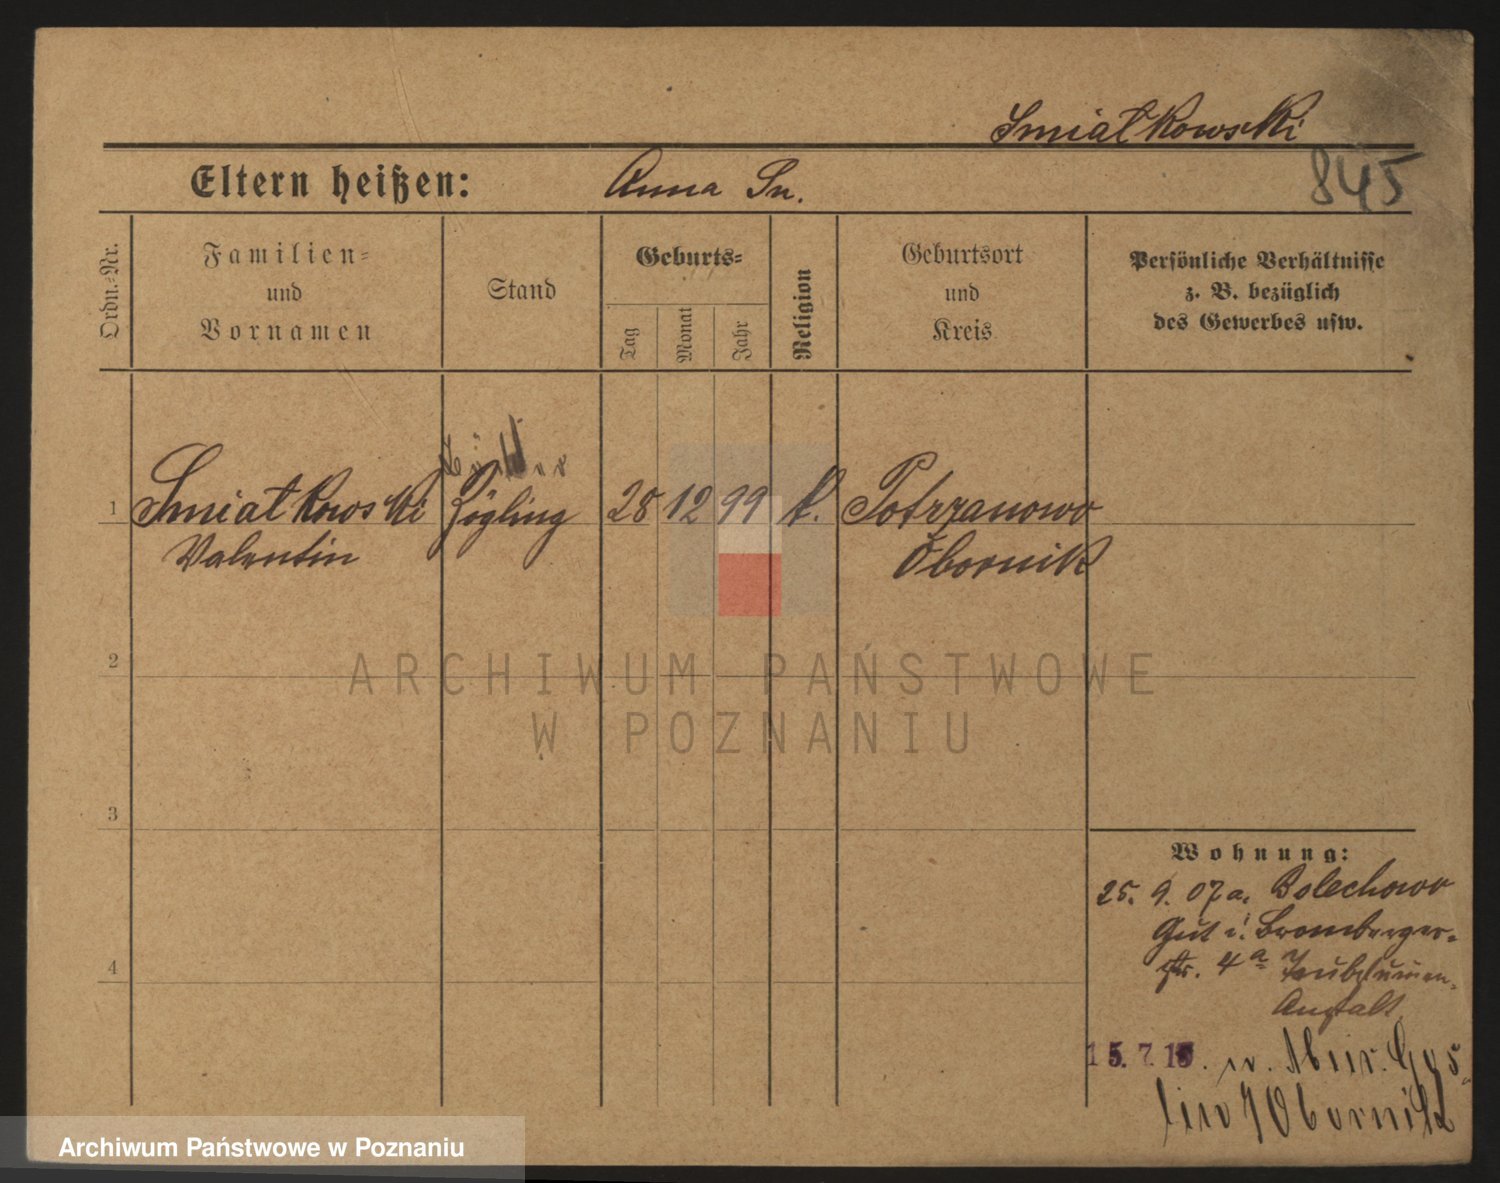 Smiatkowski
845
Eltern heißen: Anna Sm.
Ordn.-Nr.
Familien-
und
Vornamen
Stand
Geburts-
Tag
Monat
Jahr
Religion
Geburtsort
und
Kreis
Persönliche Verhältnisse
z. B. bezüglich
des Gewerbes usw.
1 Smiatkowski Zögling 28 12 99 k. Potrzanowo
Valentin Obornik
2
3
4
Wohnung:
25. 9. 07 a. Bolechowo
Gut i. Bromberger-
str. 4a Taubstummen-
Anstalt
15.7.15. n. Mur. Gos
lin / Obornik
ARCHIWUM PAŃSTWOWE
W POZNANIU
Archiwum Państwowe w Poznaniu